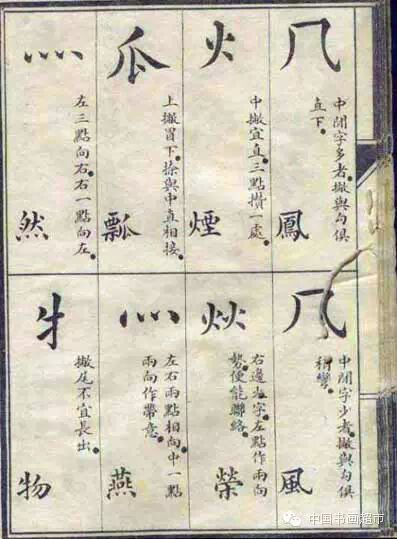 几
中閒字多者撇與勾俱
直下
鳳
火
中撇宜直三點攢一處
煙
瓜
上撇冒下捺與中直相接
瓢
灬
左三點向右右一點向左
然
几
中閒字少者撇與勾俱
稍彎
風
炏
右邊火字左點作兩向
勢便能聯絡
榮
灬
左右兩點相向中一點
兩向作帶意
燕
牜
撇尾不宜長出
物
中国书画超市